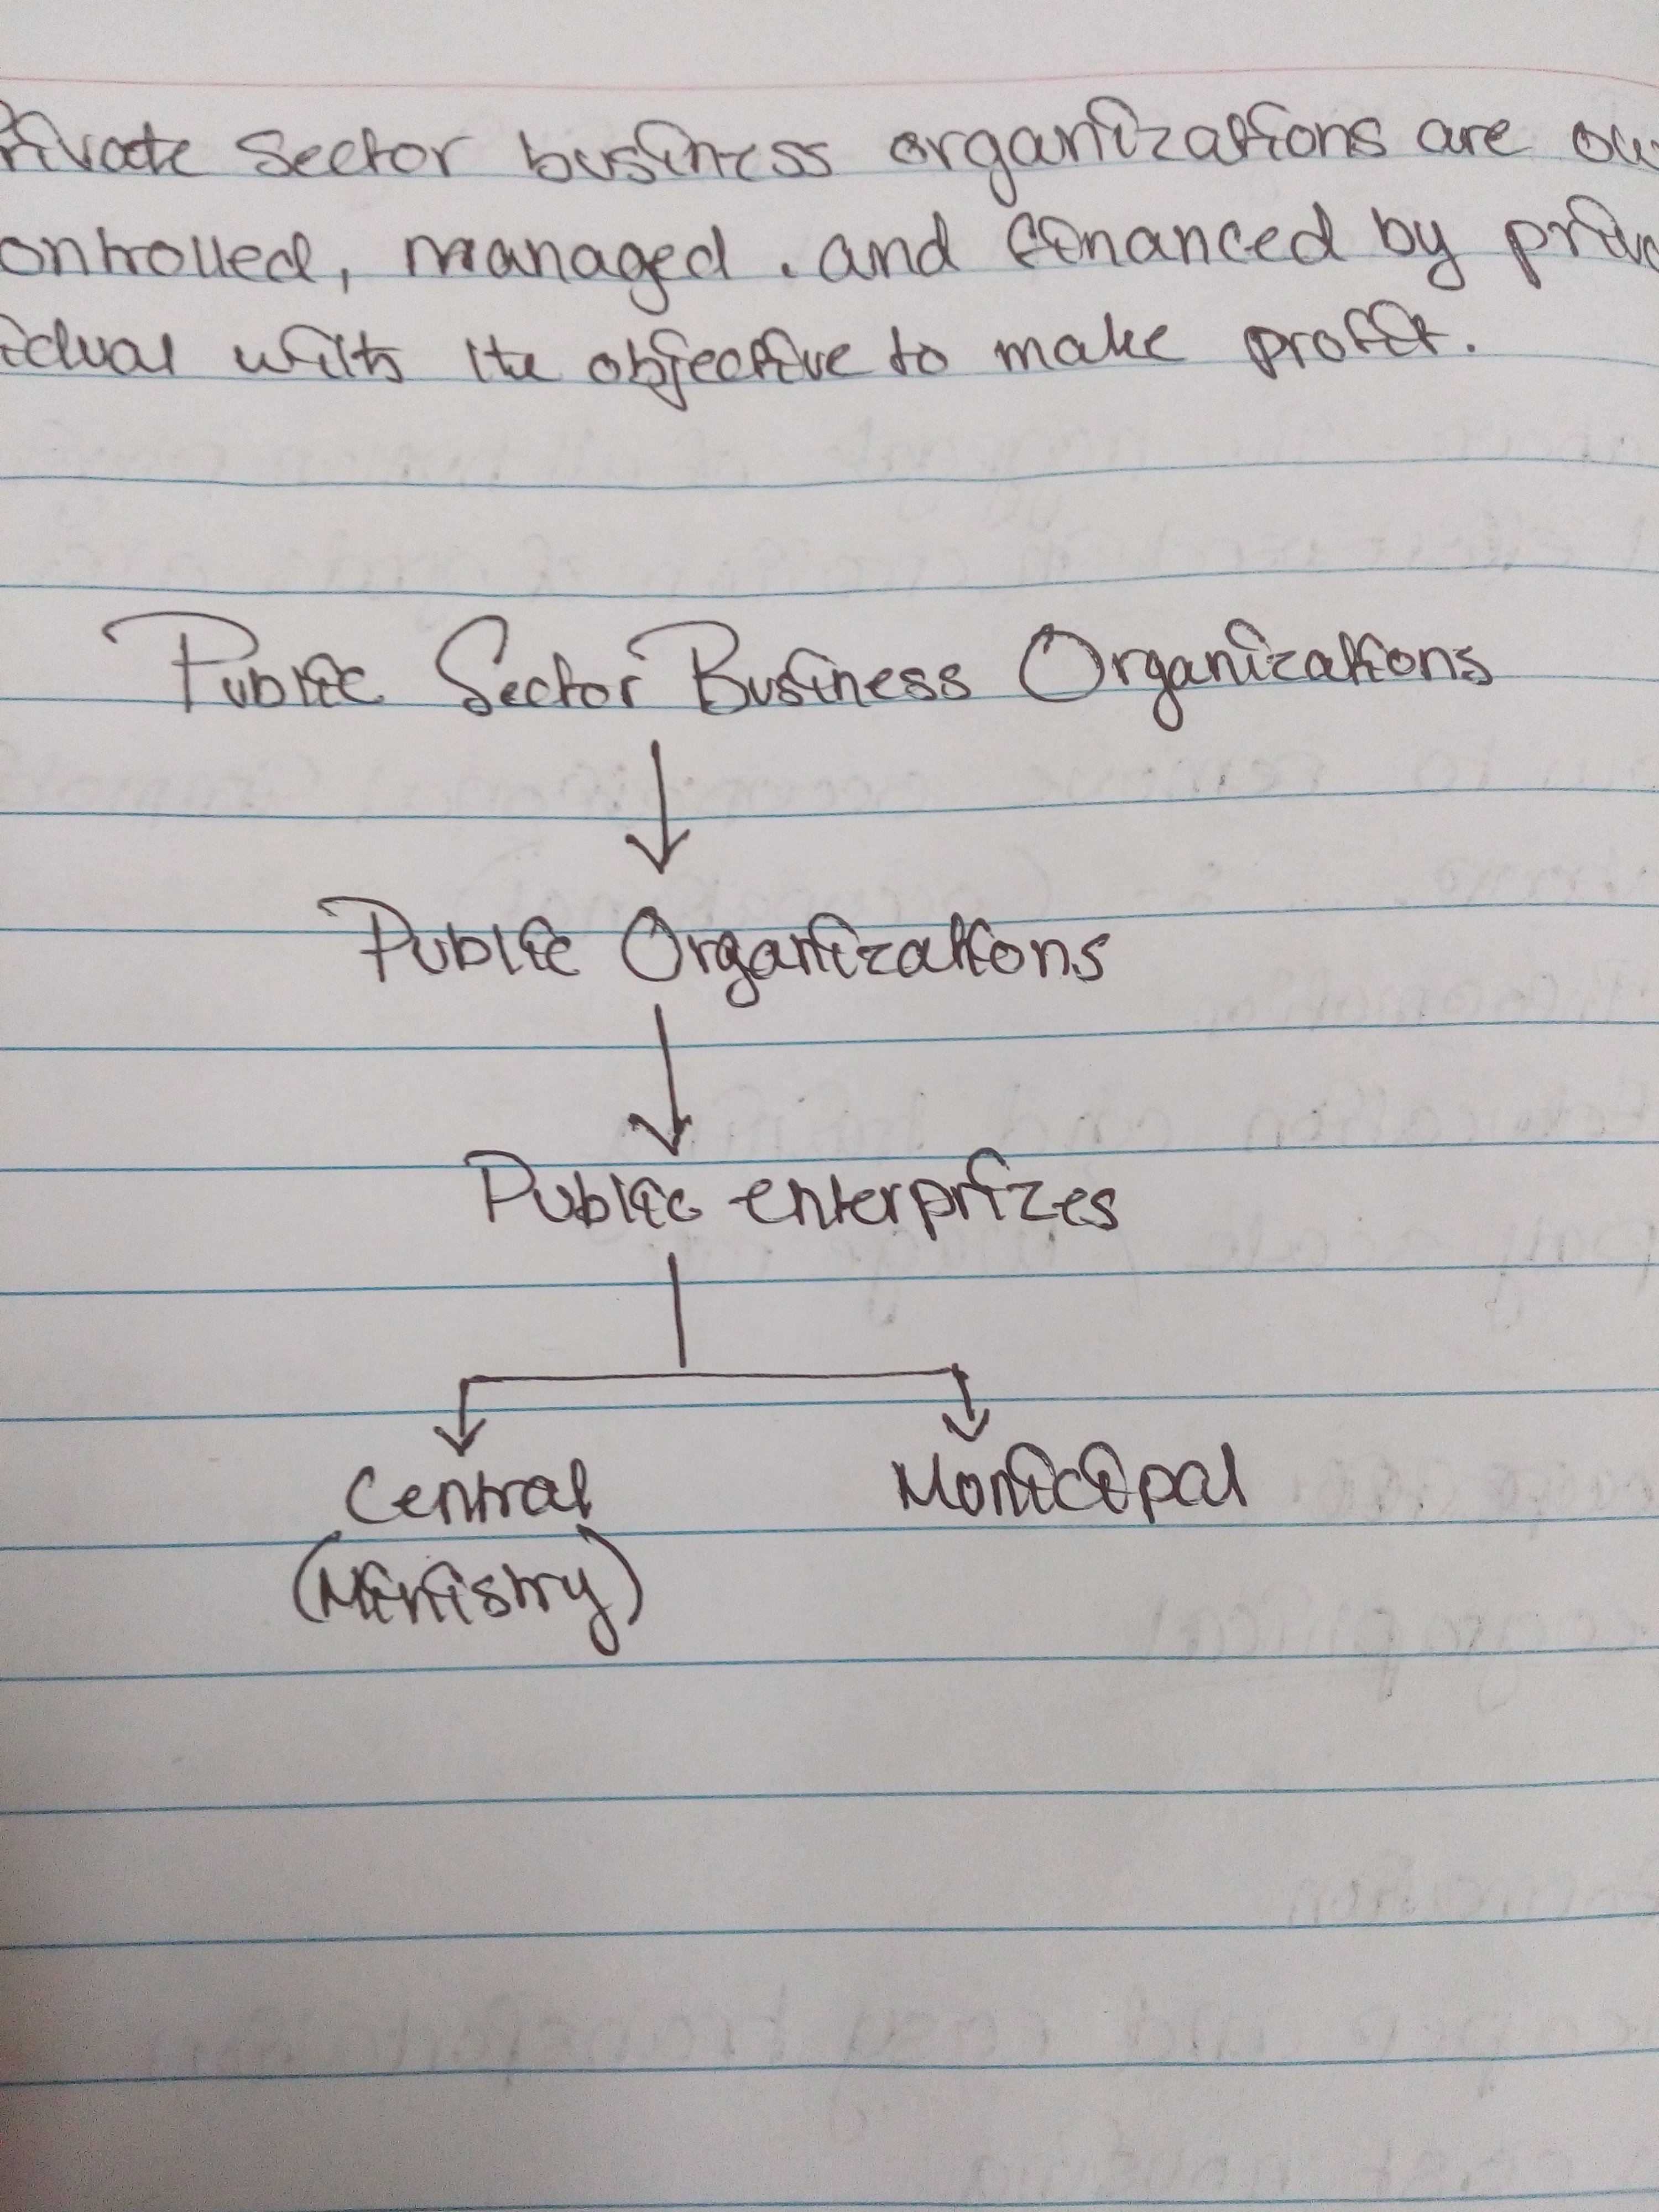 Private Sector business organizations are
controlled, managed. and financed by
with the objective to make profit.
Public Sector Business Organizations
Public Organizations
Public enterprizes
Central
Monicipal
(Ministry)